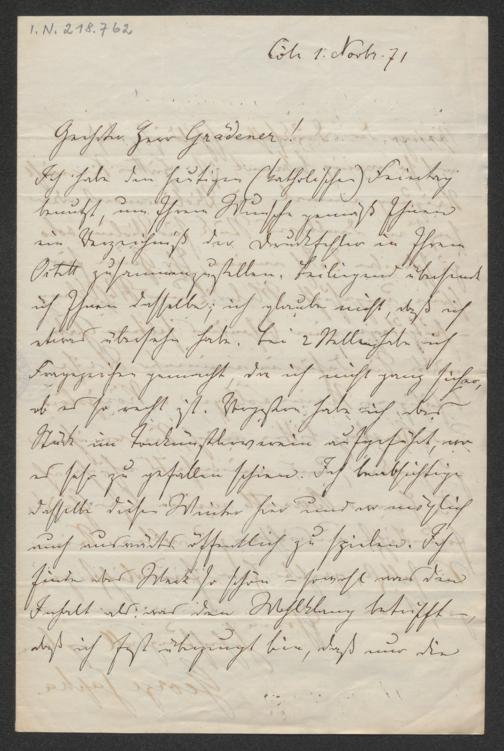 I.N. 218.762
Cöln 1. Novbr. 71
Geehrter Herr Grädener!
Ich habe den heutigen (katholischen) Feiertag
benutzt, um Ihrem Wunsche gemäß Ihnen
ein Verzeichniß der Druckfehler in Ihrem
Oktett zusammenzustellen. Beiliegend übersende
ich Ihnen dasselbe; ich glaube nicht, daß ich
etwas übersehn habe. Bei 2 Stellen habe ich
Fragezeichen gemacht, da ich nicht ganz sicher,
ob es so recht ist. Vorgestern habe ich das
Stück im Tonkünstlerverein aufgeführt, wo
es sehr zu gefallen schien. Ich beabsichtige
dasselbe diesen Winter hier und wo möglich
auch auswärts öffentlich zu spielen. Ich
finde das Werk so schön – sowohl was den
Inhalt als was den Wohlklang betrifft –,
daß ich fest überzeugt bin, daß nur die